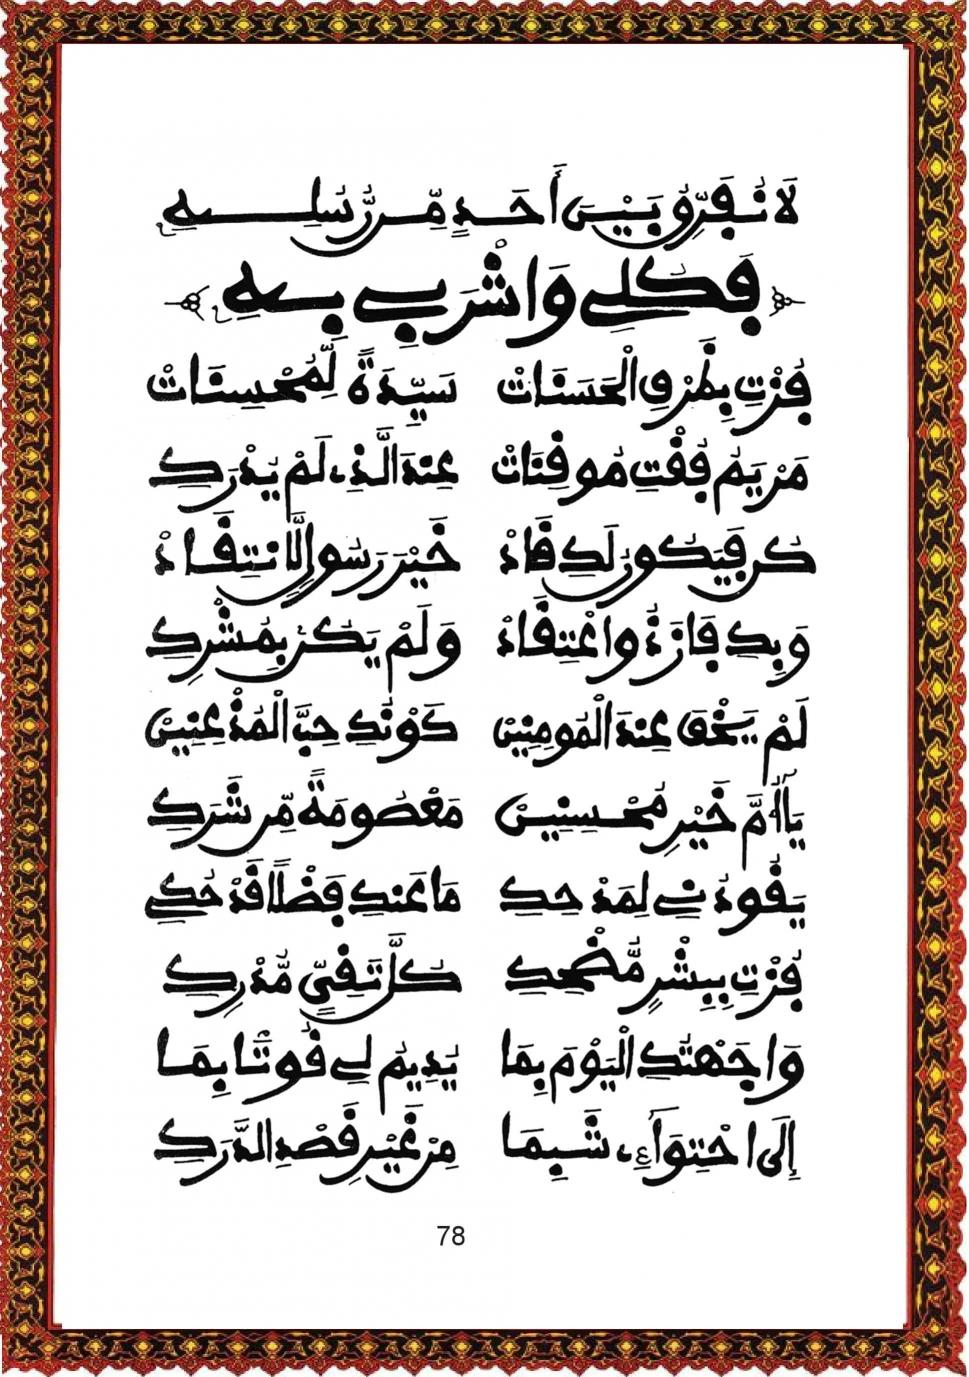 لَا نُفَرِّقُ بَيْنَ أَحَدٍ مِّن رُّسُلِهِ
فَكُلِي وَاشْرَبِي بِهِ
فُزْتِ بِظَرْفِ الْحَسَنَاتْ سَيِّدَةً لِّمُحْسِنَاتْ
مَرْيَمُ فُقْتِ مُوقِنَاتْ عِنْدَ الَّذِي لَمْ يُدْرَكِ
كُن فَيَكُونُ لَكِ قَادْ خَيْرَ رَسُولٍ لَانتِقَادْ
وَبِكِ فَازَ ذُو اعْتِقَادْ وَلَمْ يَكُنْ بِمُشْرِكِ
لَمْ يَخْفَ عِنْدَ الْمُومِنِينْ كَوْنُكِ حِبَّ الْمُذْعِنِينْ
يَا أُمَّ خَيْرِ مُحْسِنِينْ مَعْصُومَةً مِّن شَرَكِ
يَقُودُنِي لِمَدْحِكِ مَا عَنكِ فَضْلًا قَدْ حُكِي
فُزْتِ بِبِشْرٍ مُّضْحِكِ كُلَّ تَقِيٍّ مُّدْرِكِ
وَاجَهْتُكِ الْيَوْمَ بِمَا يُدِيمُ لِي قُوتًا بِمَا
إِلَى احْتِوَاءِي شَبِمَا مِنْ غَيْرِ قَصْدِ الدَّرَكِ
78